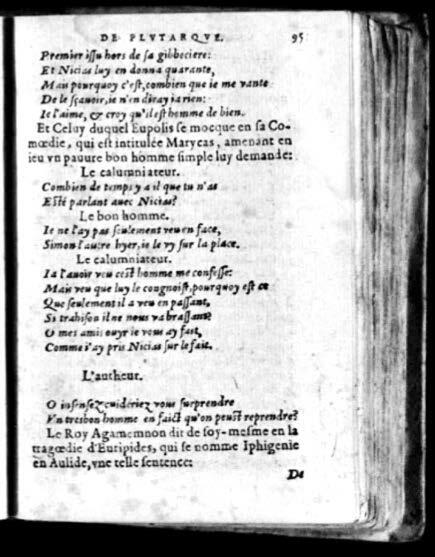 DE PLVTARQVE. 95
Premier issu hors de sa gibbeciere:
Et Nicias luy en donna quarante,
Mais pourquoy c'est, combien que ie me vante
De le sçauoir, ie n'en diray ia rien:
Ie l'aime, & croy qu'il est homme de bien.
Et Celuy duquel Eupolis se mocque en sa Co-
mœdie, qui est intitulée Marycas, amenant en
ieu vn pauure bon homme simple luy demande:
Le calumniateur.
Combien de temps y a il que tu n'as
Esté parlant auec Nicias?
Le bon homme.
Ie ne l'ay pas seulement veu en face,
Sinon l'autre hyer, ie le vy sur la place.
Le calumniateur.
Ia l'auoir veu cest homme me confesse:
Mais veu que luy le cognoist, pourquoy est ce
Que seulement il a veu en passant,
Si trahison il ne nous va brassant?
O mes amis ouyr ie vous ay fait,
Comme i'ay pris Nicias sur le fait.
L'autheur.
O insensez, cuideriez vous surprendre
Vn tresbon homme en faict qu'on peust reprendre?
Le Roy Agamemnon dit de soy-mesme en la
tragœdie d'Euripides, qui se nomme Iphigenie
en Aulide, vne telle sentence:
De